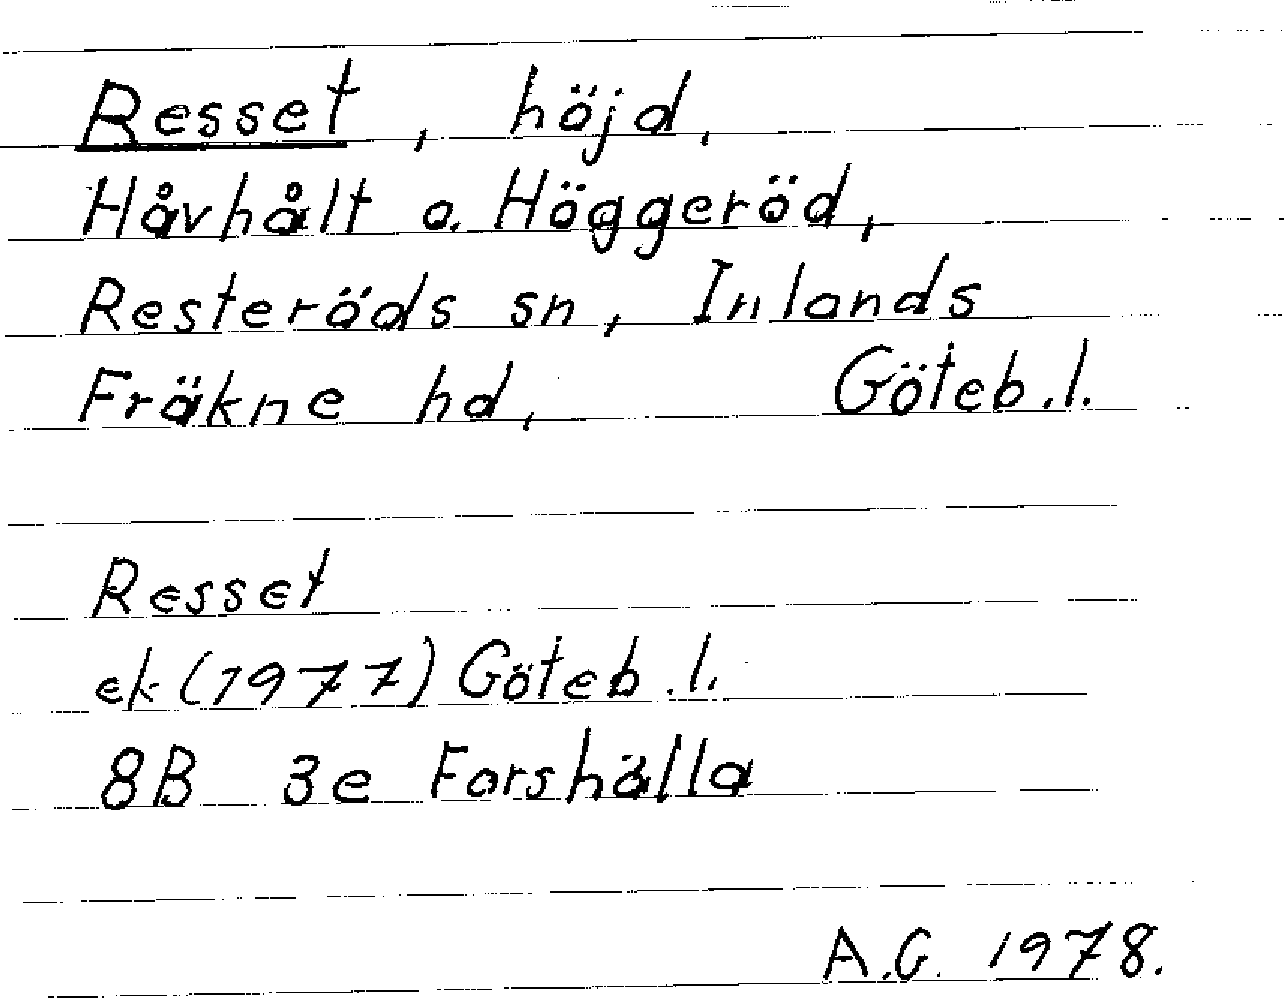 Resset, höjd.
Håvhålt o. Höggeröd,
Resteröds sn, Inlands
Fräkne hd, Göteb.l.
Resset
ek (1977) Göteb.l.
8B 3e Forshälla
A.G. 1978.